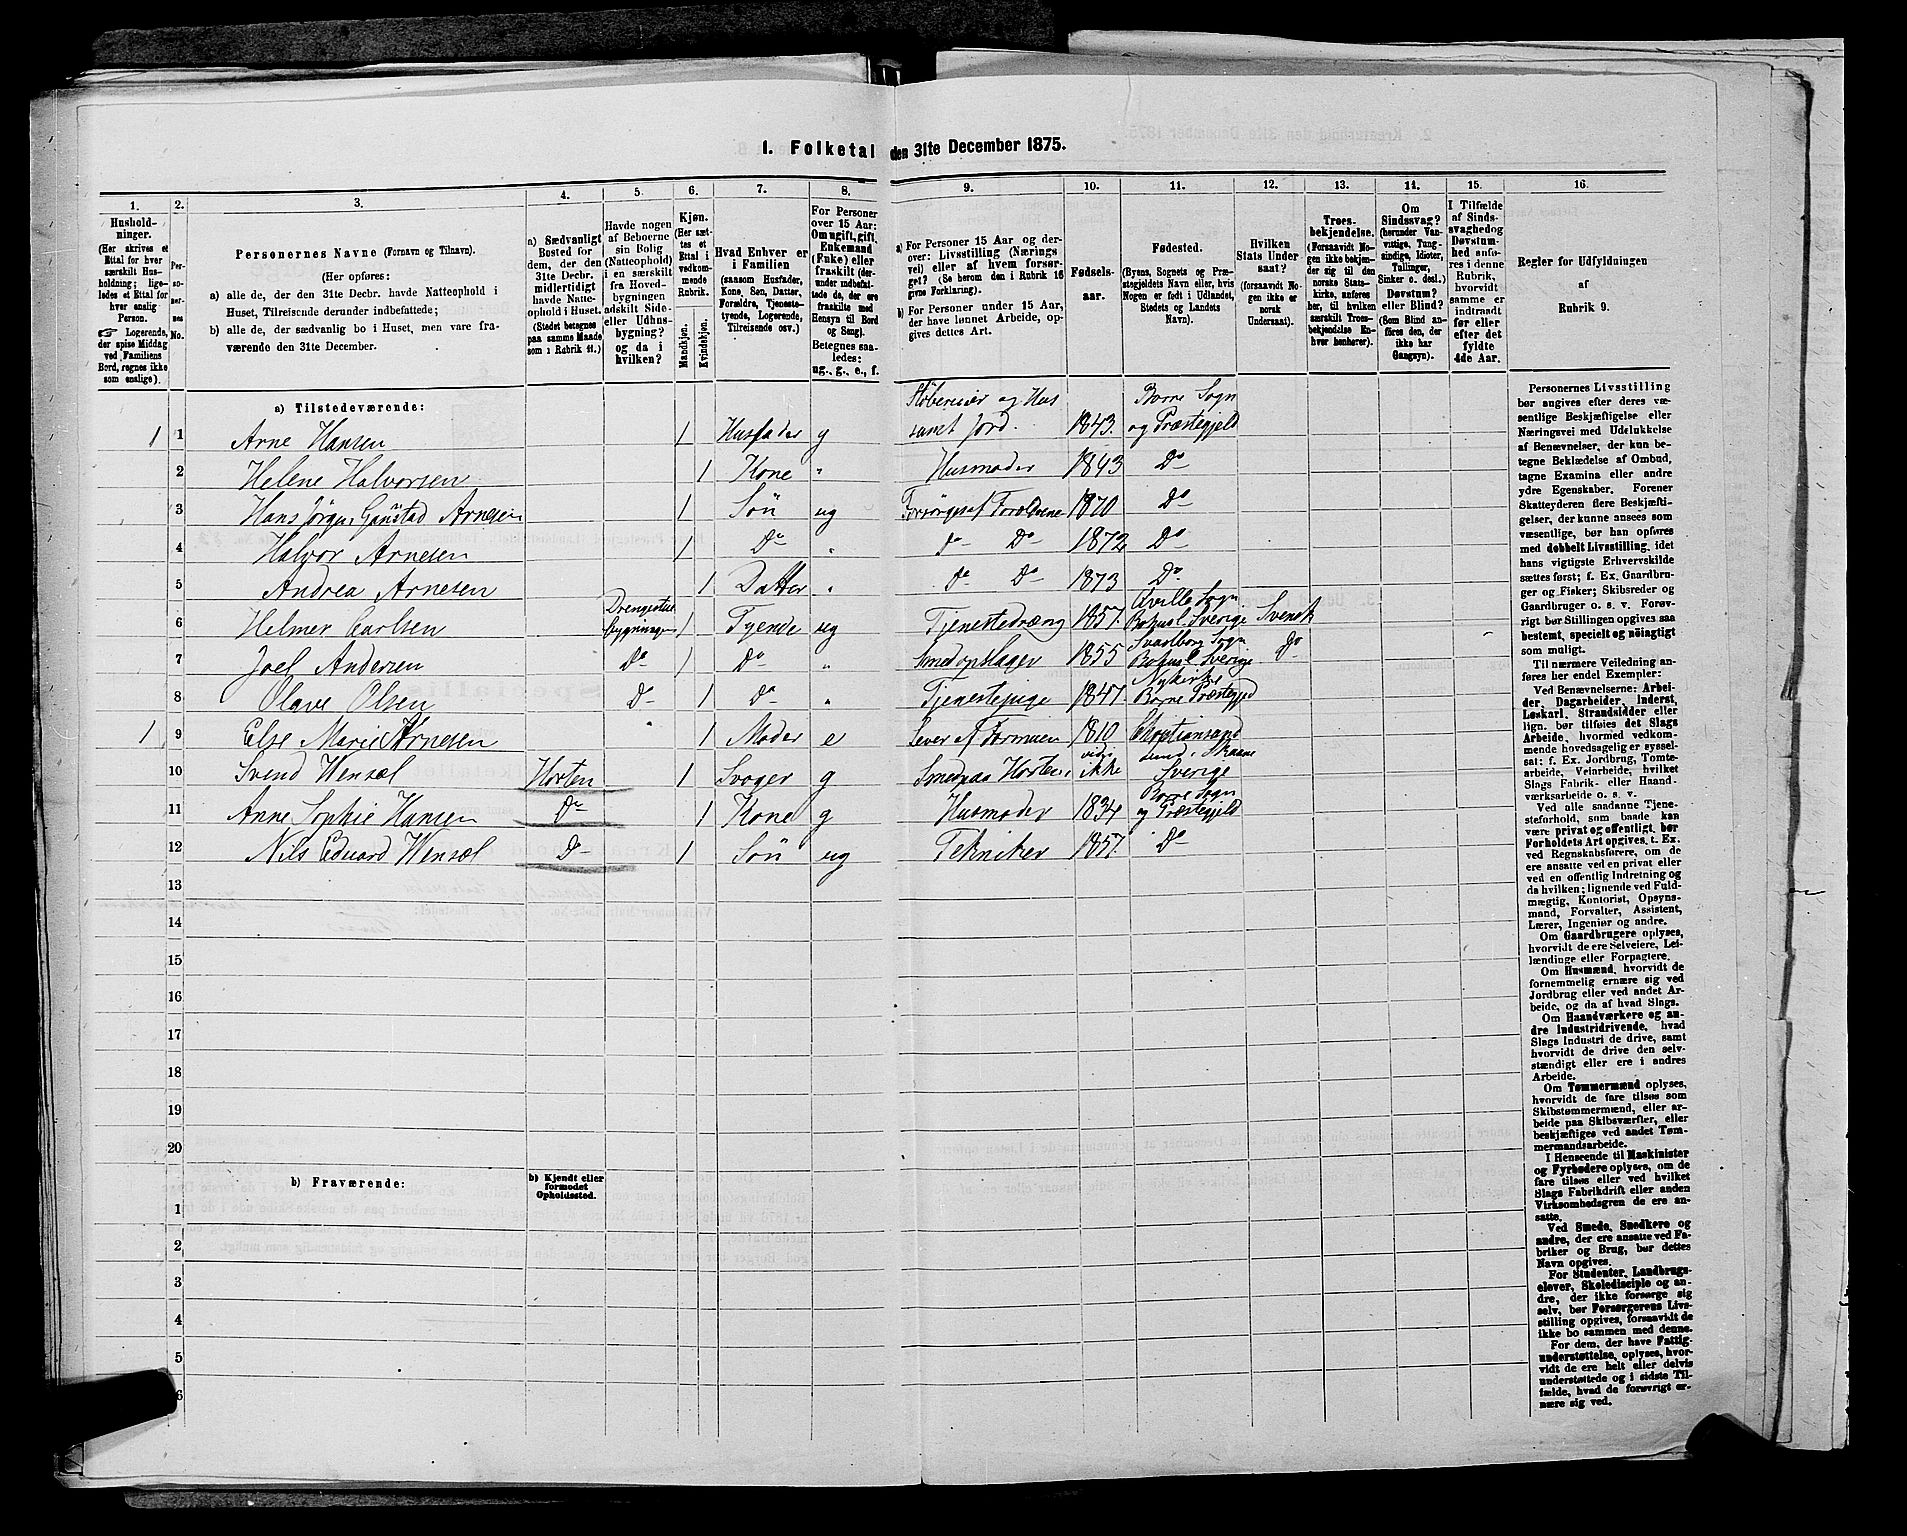 1. Folketal den 31te December 1875.
1. 2. 3. 4. 5. 6. 7. 8. 9. 10. 11. 12. 13. 14. 15. 16.
Hushold-
ninger.
(Her skrives et
Ettal for hver
særskilt Hus-
holdning; lige-
ledes et Ettal for
hver enslig
Person.
☞ Logerende,
der spise Middag
ved Familiens
Bord, regnes ikke
som enslige).
Per-
so-
ner-
nes
No.
Personernes Navne (Fornavn og Tilnavn).
(Her opføres:
a) alle de, der den 31te Decbr. havde Natteophold i
Huset, Tilreisende derunder indbefattede;
b) alle de, der sædvanlig bo i Huset, men vare fra-
værende den 31te December.
a) Sædvanligt
Bosted for
dem, der den
31te Decbr.
midlertidigt
havde Natte-
ophold i Huset.
(Stedet betegnes
paa samme Maade
som i Rubrik 11.)
Havde nogen
af Beboerne
sin Bolig
(Natteophold)
i en særskilt
fra Hoved-
bygningen
adskilt Side-
eller Udhus-
bygning?
og da i
hvilken?
Kjøn.
(Her sæt-
tes et
Ettal i
vedkom-
mende
Rubrik.
Mandkjøn.
Kvindekjøn.
Hvad Enhver er
i Familien
(saasom Husfader,
Kone, Søn, Datter,
Forældre, Tjeneste-
tyende, Logerende,
Tilreisende osv.)
For Personer
over 15 Aar:
Om ugift, gift,
Enkemand
(Enke) eller
fraskilt (der-
under indbefat-
tede de, der ere
fraskilte med
Hensyn til Bord
og Seng).
Betegnes saa-
ledes:
ug., g., e., f.
a) For Personer 15 Aar og der-
over: Livsstilling (Nærings
vei) eller af hvem forsør-
get? (Se herom den i Rubrik 16
givne Forklaring).
b) For Personer under 15 Aar,
der have lønnet Arbeide, op-
gives dettes Art.
Fødsels-
aar.
Fødested.
(Byens, Sognets og Præ-
stegjeldets Navn eller, hvis
Nogen er født i Udlandet,
Stedets og Landets
Navn).
Hvilken
Stats Under
saat?
(forsaavidt No-
gen ikke er
norsk
Undersaat).
Troes-
bekjendelse.
(Forsaavidt No-
gen ikke bekjen-
der sig til den
norske Stats-
kirke, anføres
her, til hvilken
særskilt Troes-
bekjendelse En-
hver henhører).
Om
Sindssvag?
(herunder Van-
vittige, Tung-
sindige, Idioter,
Tullinger,
Sinker o. desl.)
Døvstum?
eller Blind?
(Som Blind an-
føres den, der
ikke har
Gangsyn).
I Tilfælde
af Sinds-
svaghed og
Døvstum-
hed anfø-
res i denne
Rubrik,
hvorvidt
samme er
indtraadt
før eller
efter det
fyldte
4de Aar.
Regler for Udfyldningen
af
Rubrik 9.
a) Tilstedeværende:
1 1 Arne Hansen 1 Husfader g Støberieier og Hus samt Jord. 1843. Borre Sogn og Præstegjeld
2 Helene Halvorsen 1 Kone " Husmoder 1843 Do
3 Hans Jørgen Ganstad Arnesen 1 Søn ug Forsørges af Forældrene 1870 Do
4 Halvor Arnesen 1 Do " do Do 1872 Do
5 Andrea Arnesen 1 Datter " do Do 1873 Do
6 Helmer Carlsen Drengestue bygningen 1 Tyende ug Tjenestedræng 1857. Qville Sogn Bohusl. Sverige Svensk
7 Joel Andersen Do 1 Do " Smed opslager 1855 Svarlborg Sogn Bohusl Sverige Do
8 Olave Olsen Do 1 Do " Tjenestepige 1847. Nykirke Borre Præstegjeld
1 9 Else Marie Arnesen " 1 Moder e Lever af Formuen 1810 Christiansand
10 Svend Wensel Horten 1 Svoger g Smed paa Horten vides ikke Skaane Sverige
11 Anne Sophie Hansen Do 1 Kone g Husmoder 1834 Borre Sogn og Præstegjeld
12 Nils Eduard Wensel Do 1 Søn ug Tekniker 1857. Do
13
14
15
16
17
18
19
20
b) Fraværende:
b) Kjendt eller
formodet
Opholdssted.
1
2
3
4
5
6
Personernes Livsstilling
bør angives efter deres væ-
sentlige Beskjæftigelse eller
Næringsvei med Udelukkelse
af Benævnelser, der kun be-
tegne Beklædelse af Ombud,
tagne Examina eller andre
ydre Egenskaber. Forener
Skatteyderen flere Beskjæfti-
gelser, der kunne ansees som
væsentlige, bør han opføres
med dobbelt Livsstilling, idet
hans vigtigste Erhvervskilde
sættes først; f. Ex. Gaardbru-
ger og Fisker; Skibsreder og
Gaardbruger o. s. v. Forøv-
rigt bør Stillingen opgives saa
bestemt, specielt og nøiagtigt
som muligt.
Til nærmere Veiledning an-
føres her endel Exempler:
Ved Benævnelserne: Arbei-
der, Dagarbeider, Inderst,
Løskarl, Strandsidder eller
lign. bør tilføies det Slags
Arbeide, hvormed vedkom-
mende hovedsagelig er syssel-
sat: f. Ex. Jordbrug, Tomte-
arbeide, Veiarbeide, hvilket
Slags Fabrik- eller Haand-
værksarbeide o. s. v.
Ved alle saadanne Tjene-
steforhold, som baade kan
være privat og offentligt, bør
Forholdets Art opgives. t. Ex.
ved Regnskabsførere, om de
ere ansatte ved en privat eller
ved en offentlig Indretning og
da hvilken; lignende ved Fuld-
mægtig, Kontorist, Opsyns-
mand, Forvalter, Assistent,
Lærer, Ingeniør og andre.
Om Gaardbrugere oplyses,
hvorvidt de ere Selveiere, Lei-
lændinge eller Forpagtere.
Om Husmænd, hvorvidt de
fornemmelig ernære sig ved
Jordbrug eller ved andet Ar-
beide, og da af hvad Slags.
Om Haandværkere og an-
dre Industridrivende, hvad
Slags Industri de drive, samt
hvorvidt de drive den selv-
stændigt eller ere i andres
Arbeide.
Om Tømmermænd oplyses,
hvorvidt de fare tilsøs som
Skibstømmermænd, eller ar-
beide paa Skibsværfter, eller
beskjæftiges ved andet Tøm-
mermandsarbeide.
I Henseende til Maskinister
og Fyrbødere oplyses, om de
fare tilsøs eller ved hvilket
Slags Fabrikdrift eller anden
Virksomhedsgren de ere an-
satte.
Ved Smede, Snedkere og
andre, der ere ansatte ved Fa-
briker og Brug, bør dettes
Navn opgives.
For Studenter, Landbrugs-
elever, Skoledisciple og an-
dre, der ikke forsørge sig
selv, bør Forsørgerens Livs-
stilling opgives, forsaavidt de
ikke bo sammen med denne.
For dem, der have Fattig-
understøttelse, oplyses, hvor-
vidt de ere helt eller delvis
understøttede og i sidste Til-
fælde, hvad de forøvrigt er-
nære sig ved.